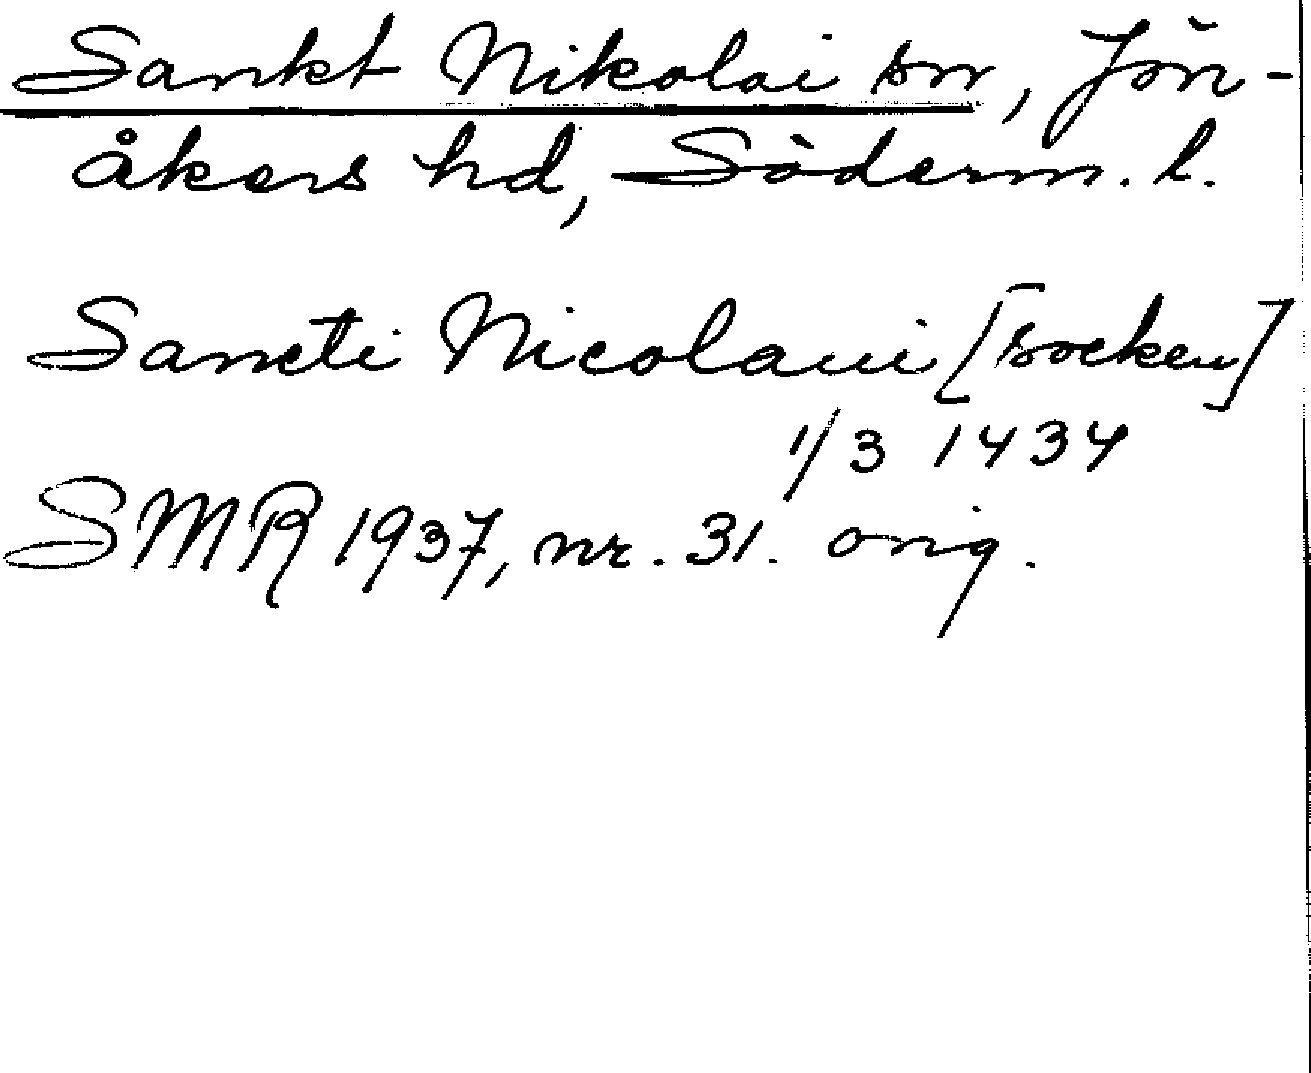 Sankt Nikolai sn, Jön-
åkers hd, Söderm. l.
Sancti Nicolaui [socken]
1/3 1434
SMR 1937, nr. 31. orig.